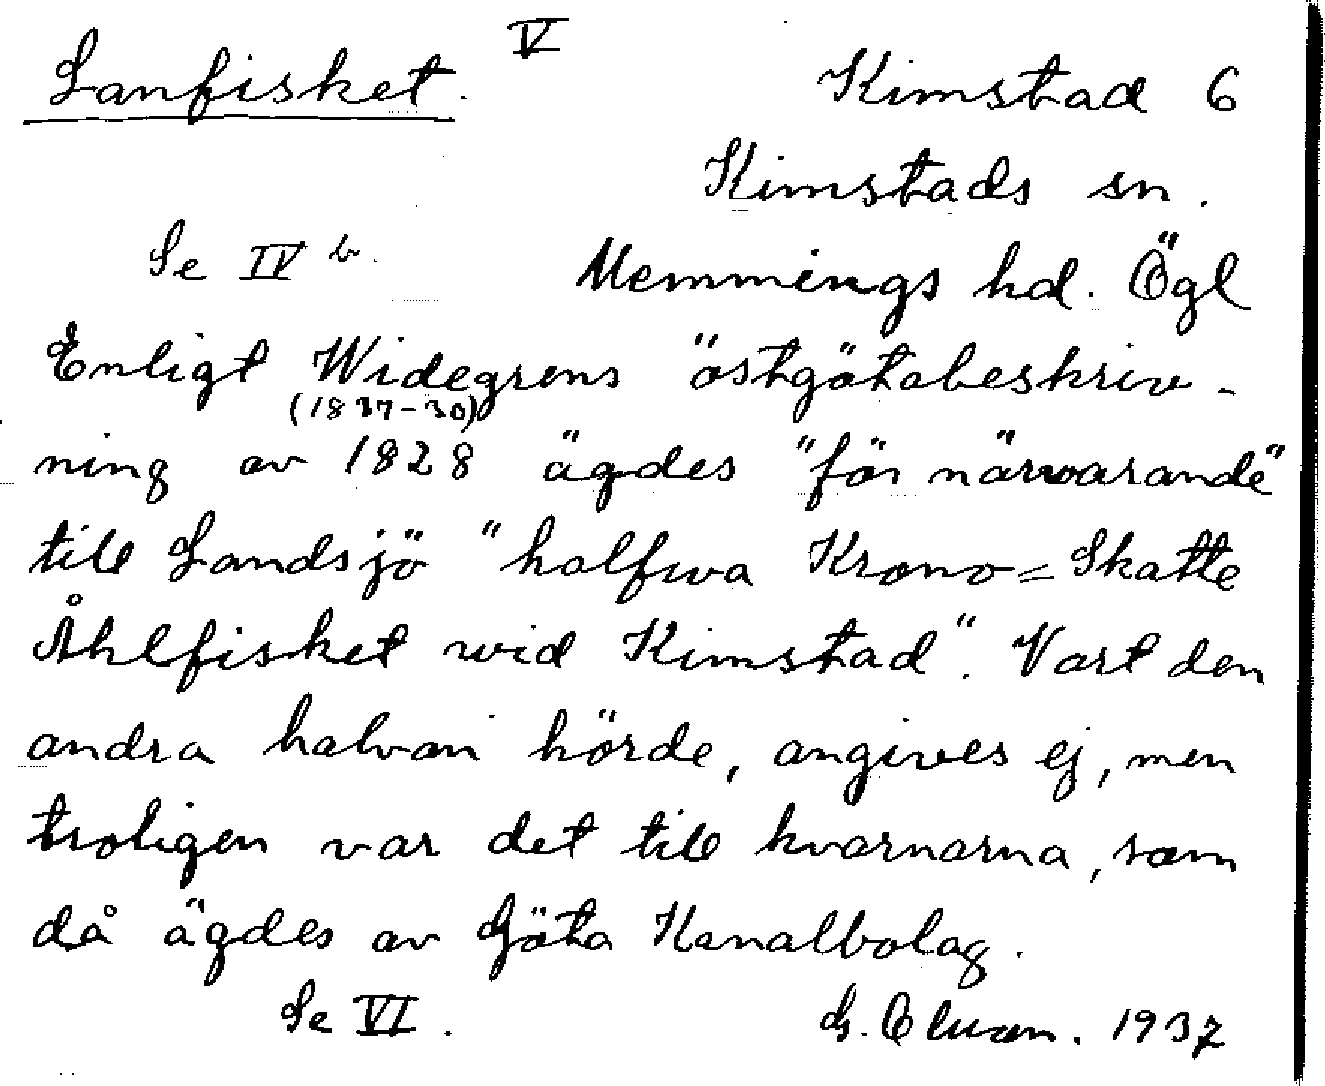 Lanfisket. V Kimstad 6
Kimstads sn.
Se IV b. Memmings hd. Ögl
Enligt Widegrens östgötabeskriv-
(1837-30)
ning av 1828 ägdes "för närwarande"
till Landsjö "halfwa Krono=Skatte
Åhlfisket wid Kimstad". Vart den
andra halvan hörde, angives ej, men
troligen var det till kvarnarna, som
då ägdes av Göta Kanalbolag.
Se VI. G. 1937